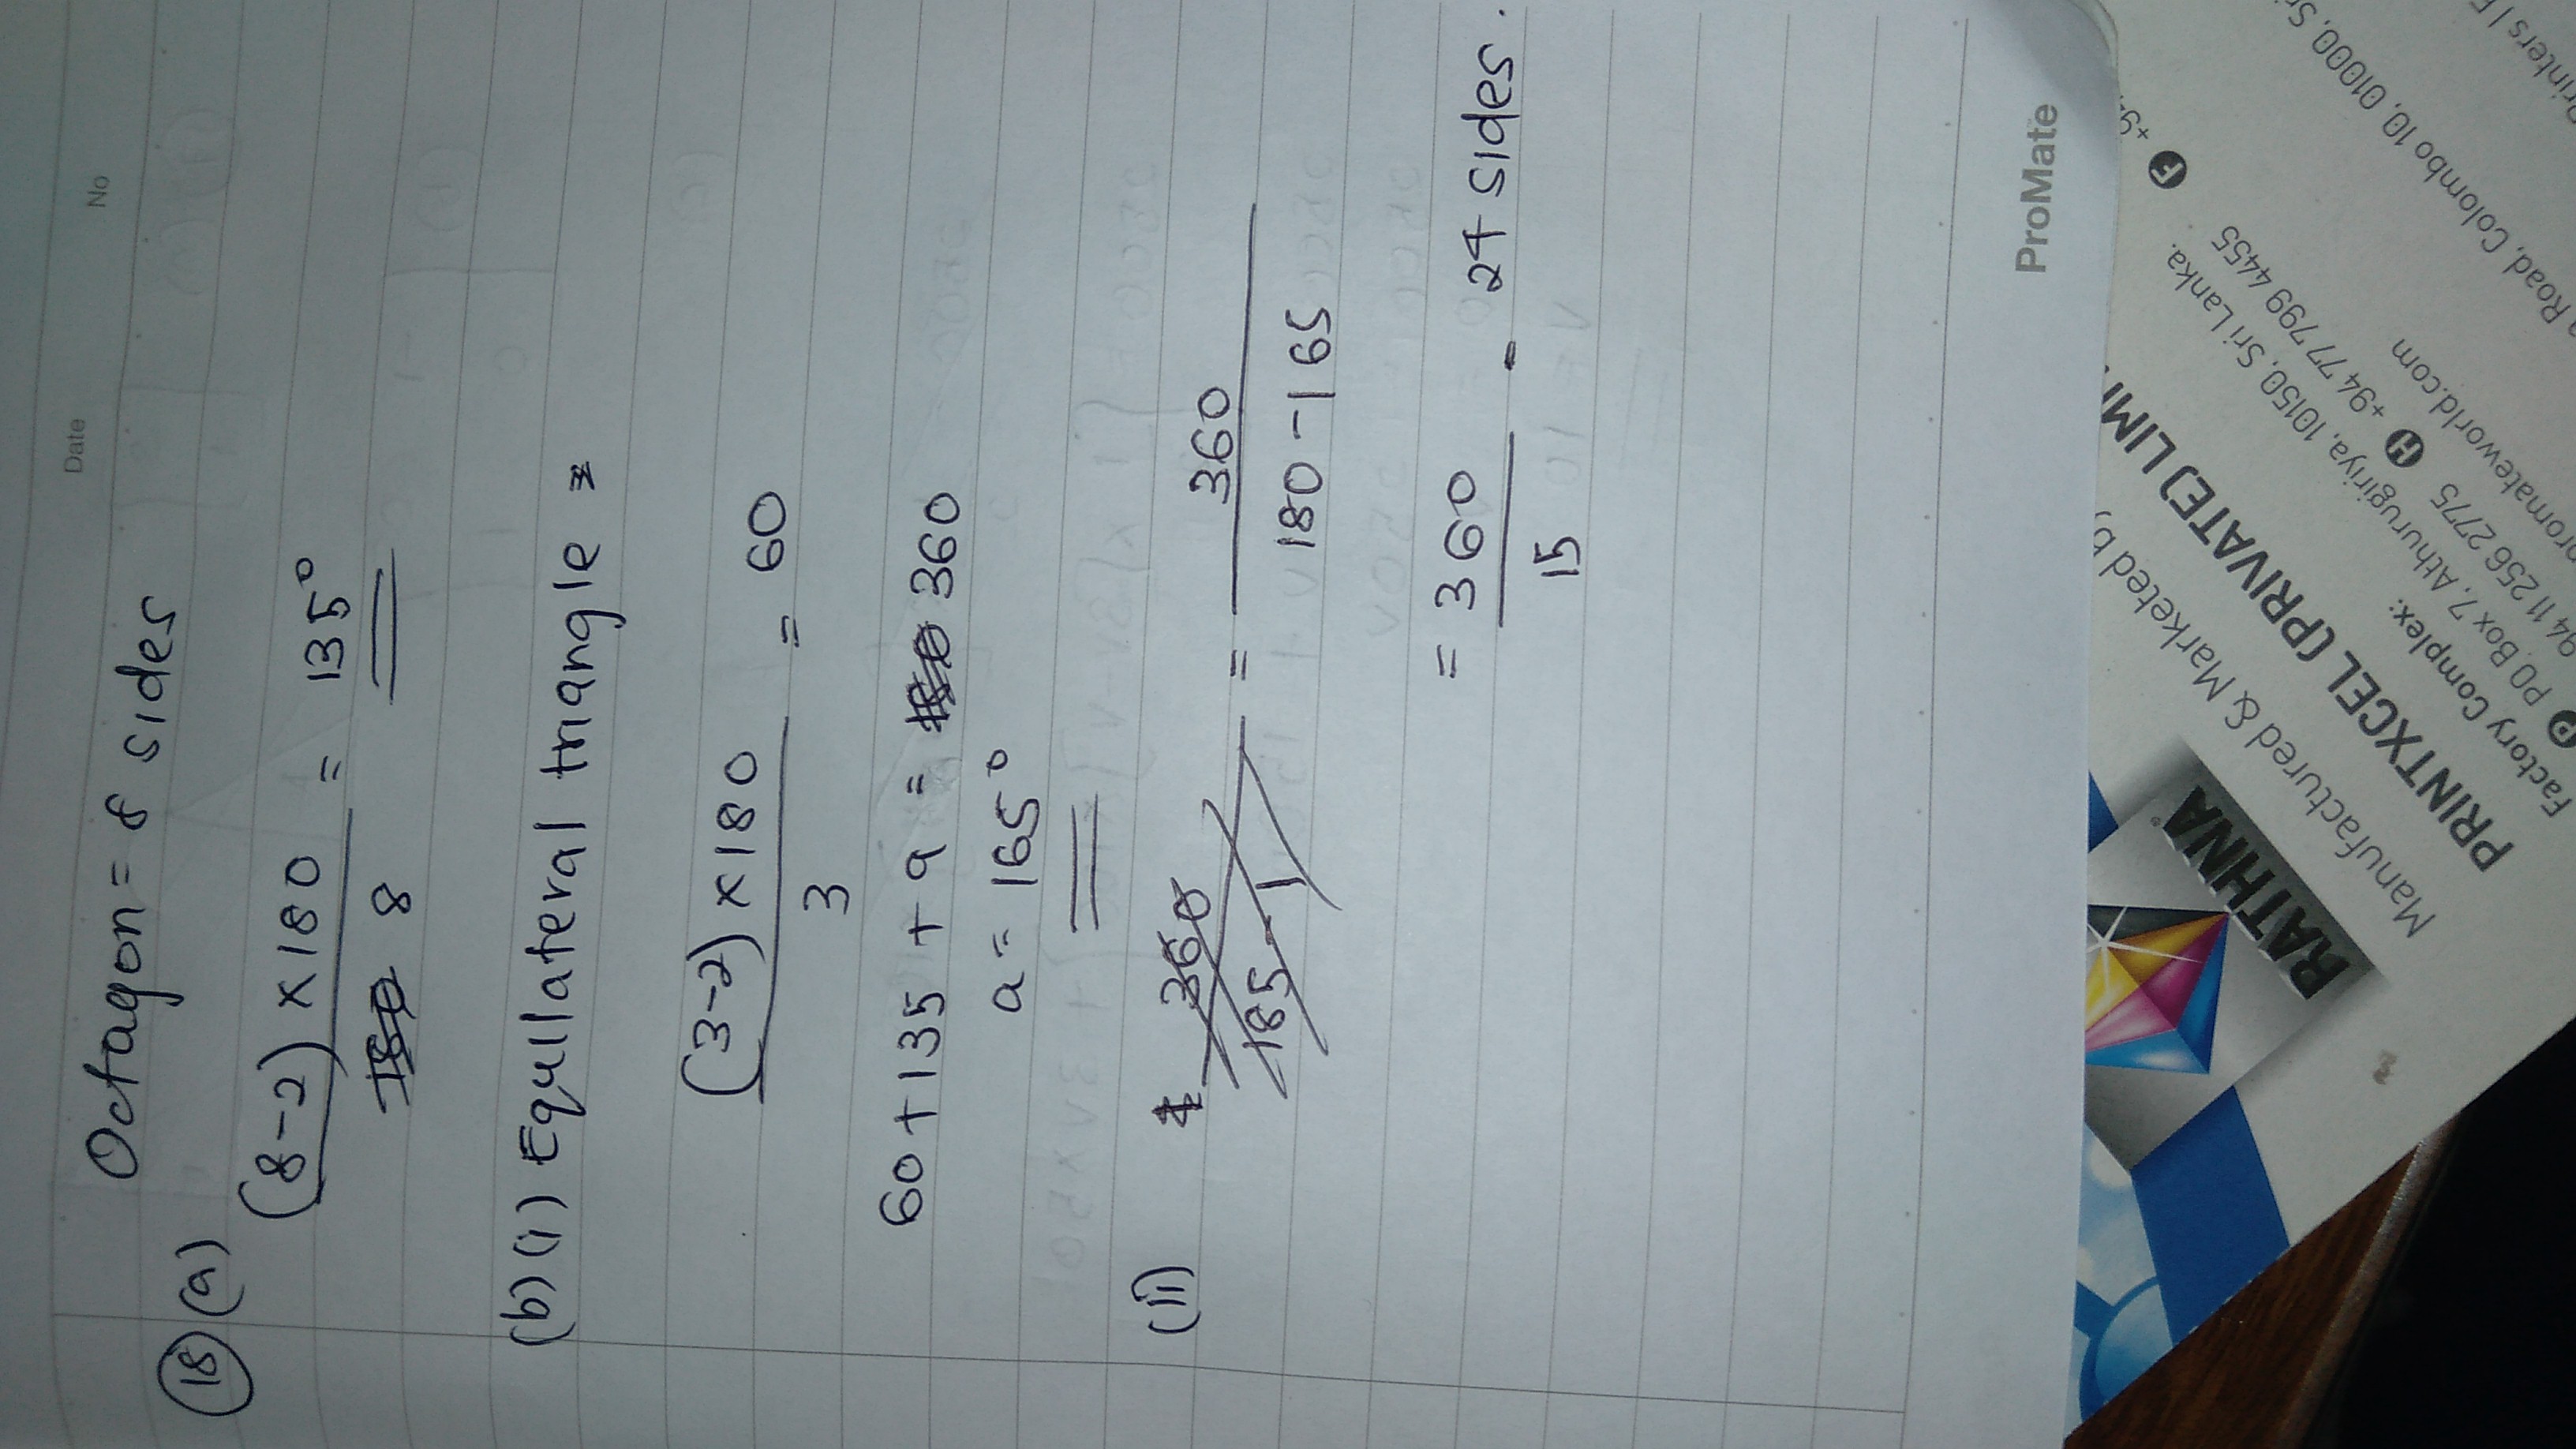 Date
No
Octagon = 8 sides
18 (a)
(8-2) × 180 = 135°
180 8
(b) (i) Equllateral triangle =
(3-2) × 180 = 60
3
60 + 135 + a = 180 360
a = 165°
(ii) 360 = 360
185 - 1 180 - 165
= 360 = 24 sides.
15
ProMate
RATHNA
Manufactured & Marketed by
PRINTXCEL (PRIVATE) LIMI
Factory Complex:
P PO Box 7, Athurugiriya, 10150, Sri Lanka.
94 11 256 2775 H +94 77 799 4455 F +94
promateworld.com
Road, Colombo 10, 01000, Sri
Printers |